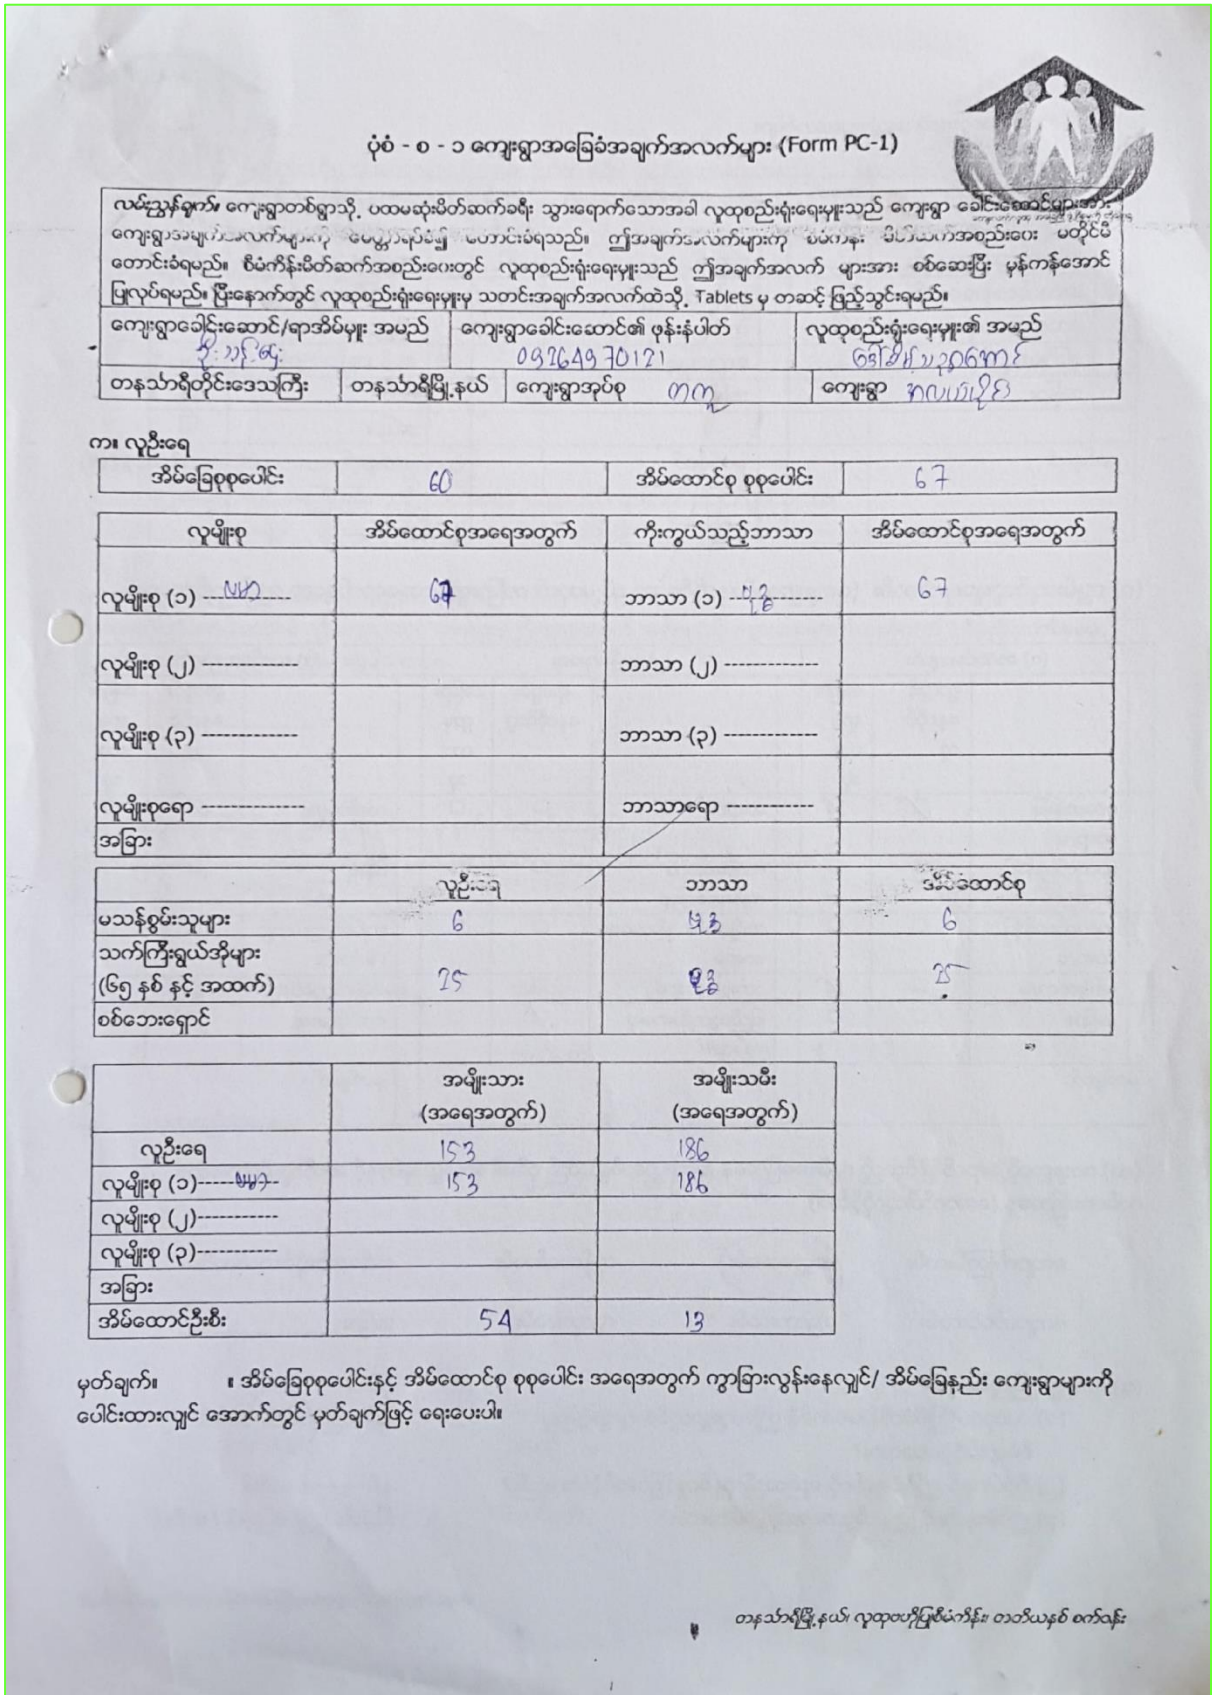 ပုံစံ - စ - ၁ ကျေးရွာအခြေခံအချက်အလက်များ (Form PC-1)
လမ်းညွှန်ချက်။ ကျေးရွာတစ်ရွာသို့ ပထမဆုံးမိတ်ဆက်ခရီး သွားရောက်သောအခါ လူထုစည်းရုံးရေးမှူးသည် ကျေးရွာ ခေါင်းဆောင်များအား
ကျေးရွာအချက်အလက်များကို မေတ္တာရပ်ခံ၍ တောင်းခံရသည်။ ဤအချက်အလက်များကို စီမံကိန်း မိတ်ဆက်အစည်းဝေး မတိုင်မီ
တောင်းခံရမည်။ စီမံကိန်းမိတ်ဆက်အစည်းဝေးတွင် လူထုစည်းရုံးရေးမှူးသည် ဤအချက်အလက် များအား စစ်ဆေးပြီး မှန်ကန်အောင်
ပြုလုပ်ရမည်။ ပြီးနောက်တွင် လူထုစည်းရုံးရေးမှူးမှ သတင်းအချက်အလက်ထဲသို့ Tablets မှ တဆင့် ဖြည့်သွင်းရမည်။
ကျေးရွာခေါင်းဆောင်/ရာအိမ်မှူး အမည် ကျေးရွာခေါင်းဆောင်၏ ဖုန်းနံပါတ် လူထုစည်းရုံးရေးမှူး၏ အမည်
09264970121
တနင်္သာရီတိုင်းဒေသကြီး တနင်္သာရီမြို့နယ် ကျေးရွာအုပ်စု တကူ ကျေးရွာ
က။ လူဦးရေ
အိမ်ခြေစုစုပေါင်း 60 အိမ်ထောင်စု စုစုပေါင်း 67
လူမျိုးစု အိမ်ထောင်စုအရေအတွက် ကိုးကွယ်သည့်ဘာသာ အိမ်ထောင်စုအရေအတွက်
လူမျိုးစု (၁) ဗမာ 67 ဘာသာ (၁) ဗုဒ္ဓ 67
လူမျိုးစု (၂) ------------- ဘာသာ (၂) -------------
လူမျိုးစု (၃) ------------- ဘာသာ (၃) -------------
လူမျိုးစုရော -------------- ဘာသာရော ------------
အခြား
လူဦးရေ ဘာသာ အိမ်ထောင်စု
မသန်စွမ်းသူများ 6 ဗုဒ္ဓ 6
သက်ကြီးရွယ်အိုများ
(၆၅ နှစ် နှင့် အထက်) 25 ဗုဒ္ဓ 25
စစ်ဘေးရှောင်
အမျိုးသား အမျိုးသမီး
(အရေအတွက်) (အရေအတွက်)
လူဦးရေ 153 186
လူမျိုးစု (၁)-----ဗမာ-- 153 186
လူမျိုးစု (၂)-----------
လူမျိုးစု (၃)-----------
အခြား
အိမ်ထောင်ဦးစီး 54 13
မှတ်ချက်။ ။ အိမ်ခြေစုစုပေါင်းနှင့် အိမ်ထောင်စု စုစုပေါင်း အရေအတွက် ကွာခြားလွန်းနေလျှင်/ အိမ်ခြေနည်း ကျေးရွာများကို
ပေါင်းထားလျှင် အောက်တွင် မှတ်ချက်ဖြင့် ရေးပေးပါ။
တနင်္သာရီမြို့နယ်၊ လူထုဗဟိုပြုစီမံကိန်း၊ တတိယနှစ် စက်ဝန်း